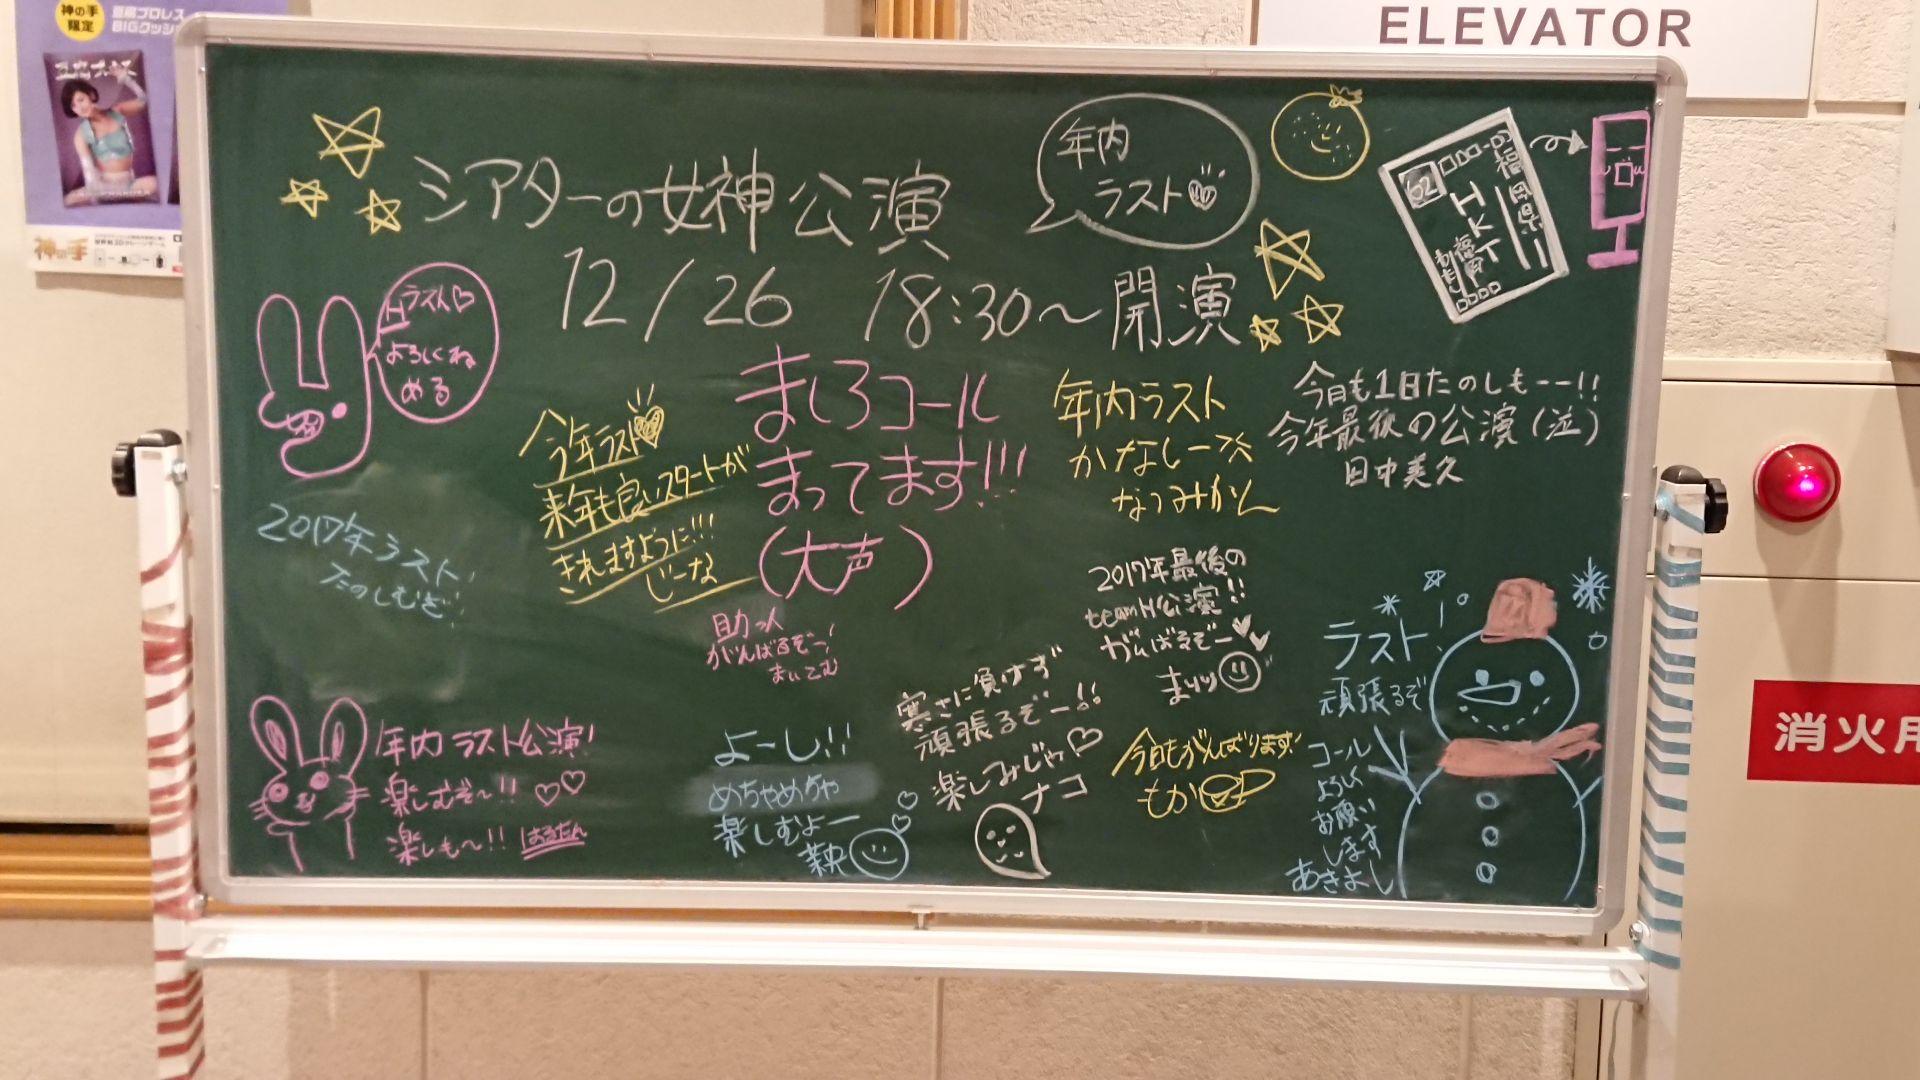 神の手
限定
豆腐プロレス
BIGクッショ
神の手
ELEVATOR
シアターの女神公演
年内
ラスト
12/26 18:30~開演
62
福岡県
HKT
Hラスト♡
よろしくね
める
今年ラスト
来年も良いスタートが
きれますように!!!
じーな
ましろコール
まってます!!!
(大声)
年内ラスト
かなしー
なつみかん
今日も1日たのしもーー!!
今年最後の公演(泣)
田中美久
2017年ラスト!
たのしむぞ!
助っ人
がんばるぞー!
まいこむ
2017年最後の
teamH公演!!
がんばるぞー
まりり
ラスト!
頑張るぞ
コール
よろしく
お願い
します
あきよし
年内ラスト公演!
楽しむぞ~!! ♡♡
楽しも~!! はるたん
よーし!!
めちゃめちゃ
楽しむよー
寒さに負けず
頑張るぞー!!
楽しみじゃ♡
ナコ
今日もがんばります!
もか
消火用